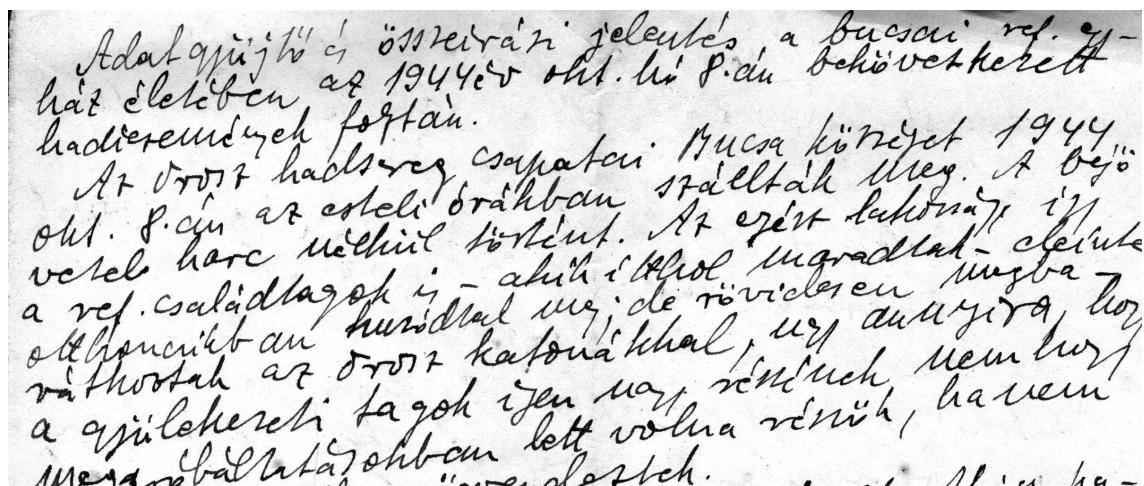 Adatgyüjtő és összeirási jelentés a bucsai ref. egy-
ház életében az 1944 év okt. hó 8.-án bekövetkezett
hadiesemények folytán.
Az orosz hadsereg csapatai Bucsa községet 1944
okt. 8.-án az esteli órákban szállták meg. A bejö
vetel harc nélkül történt. Az egész lakosság, igy
a ref. családtagok is - akik itthol maradtak - eleinte
otthonaikban huzódtak meg; de rövidesen megba-
rátkoztak az orosz katonákkal, ugy annyira, hogy
a gyülekezeti tagok igen nagy részének nem hogy
megpróbáltatásokban lett volna részük, hanem